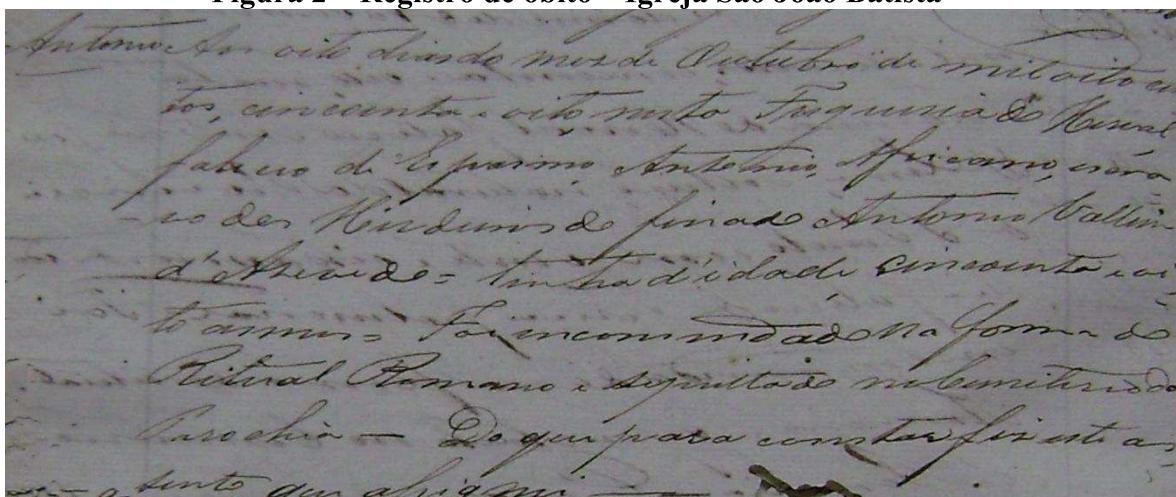 Figura 2 – Registro de óbito – Igreja São João Batista
Antonio Aos oito dias do mez de Outubro de mil oito cen
tos, cincoenta e oito nesta Freguesia de
faleceo de Espasmo Antonio, Africano, escra
vo dos Herdeiros do finado Antonio
d'Azevedo = tinha d'idade cincoenta e oi
to annos = Foi incommendado na forma do
Ritual Romano e sepultado no Cemiterio da
Parochia — Do que para constar fiz este as
sento que assignei —